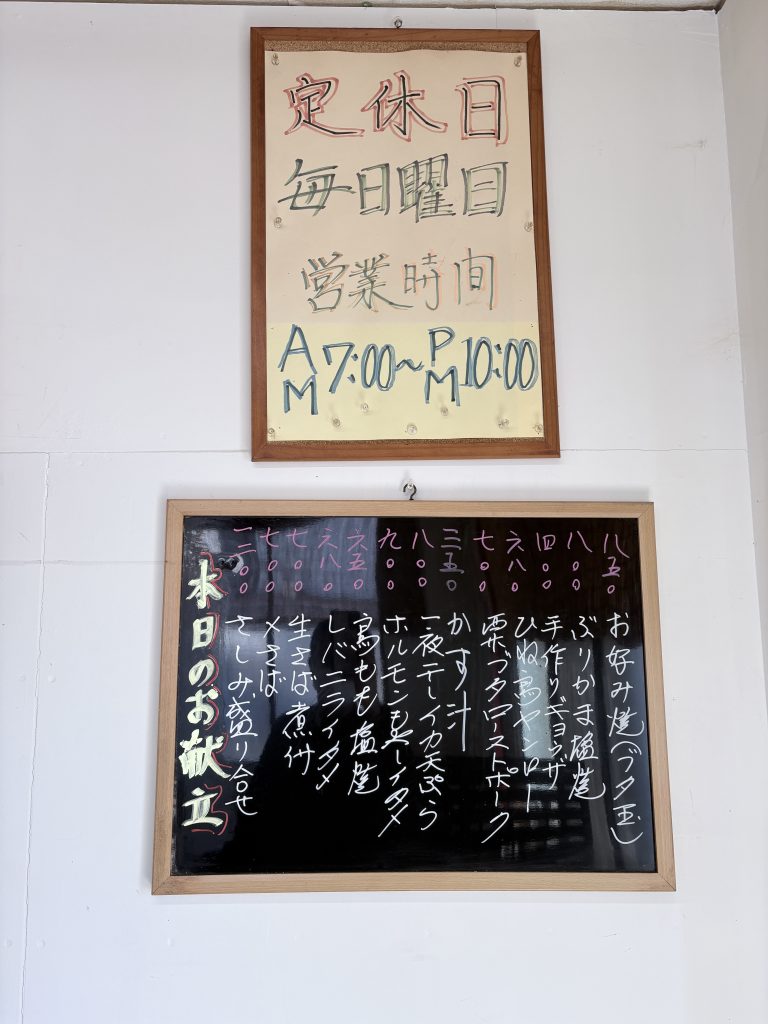 定休日
毎日曜日
営業時間
AM 7:00〜PM 10:00
八五〇 お好み焼(ブタ玉)
八〇〇 ぶりかま塩焼
四〇〇 手作りギョウザ
六八〇 ひね鳥
七〇〇 栗ブタローストポーク
三五〇 かす汁
八〇〇 一夜干しイカ天ぷら
九〇〇 ホルモンもやしイタメ
六五〇 鳥もも塩焼
六八〇 レバニライタメ
七〇〇 生さば煮付
七〇〇 〆さば
一二〇〇 さしみ盛り合せ
本日のお献立